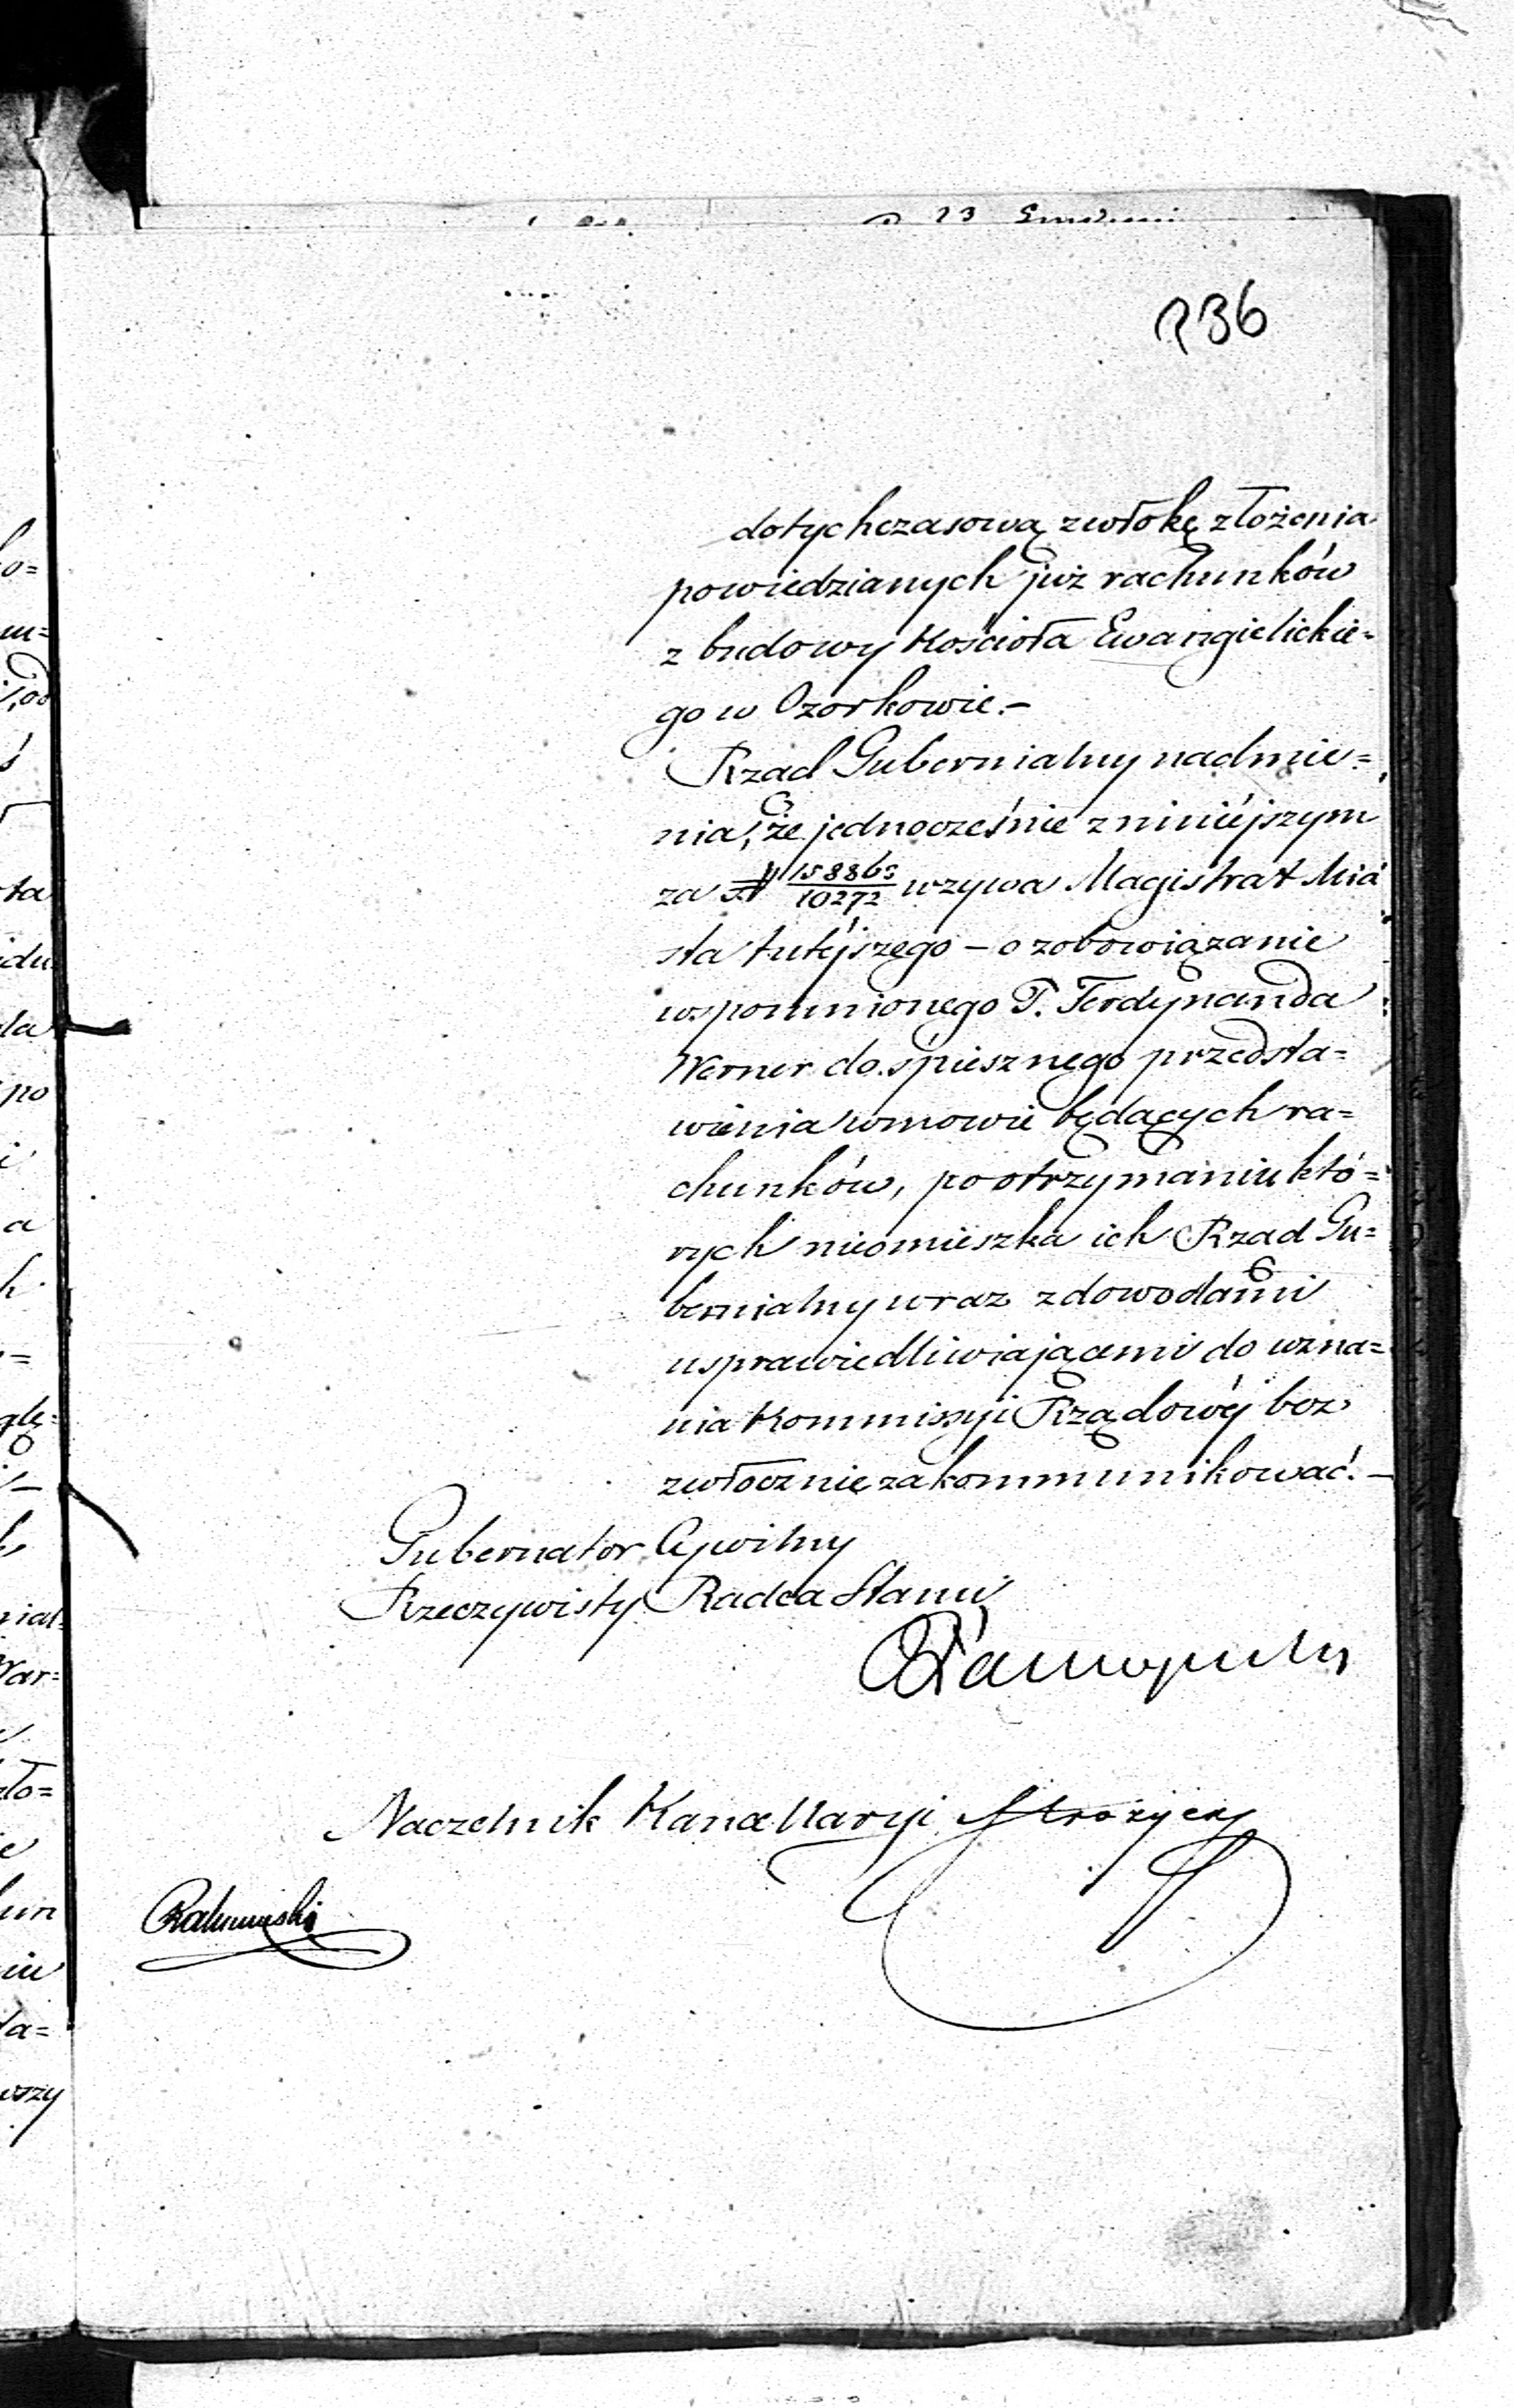 236
dotychczasową zwłokę złożenia
powiedzianych już rachunków
z budowy Kościoła Ewangielickie=
go w Ozorkowie.–
Rząd Gubernialny nadmie=
nia, że jednocześnie z niniéjszym
za № 158865/10272 wzywa Magistrat Mia
sta tutéjszego – o zobowiązanie
wspomnionego P. Ferdynanda
Werner do śpiesznego przedsta=
wienia w mowie będących ra=
chunków, po otrzymaniu któ=
rych nieomieszka ich Rząd Gu=
bernialny wraz z dowodami
usprawiedliwiającemi do uzna=
nia Kommissyi Rządowéj bez
zwłocznie zakommunikować.–
Gubernator Cywilny
Rzeczywisty Radca Stanu
Naczelnik Kancellaryi